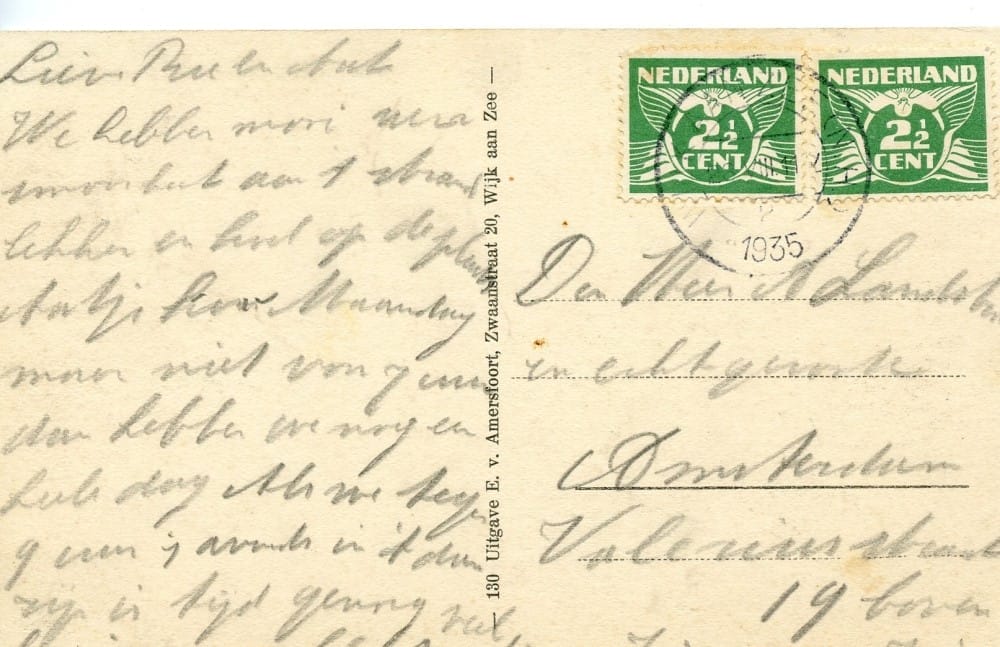 We hebben mooi weer
smoorheet aan 't strand
lekker en koel op de
Maandag
maar niet voor 7 uur
dan hebben we nog een
hele dag Als we tegen
9 uur 's avonds in
zijn is tijd genoeg veel
— 130 Uitgave E. v. Amersfoort, Zwaanstraat 20, Wijk aan Zee —
NEDERLAND
2½
CENT
NEDERLAND
2½
CENT
1935
Den Heer A Lands
en echtgenoote
Amsterdam
Valeriusstraat
19 boven